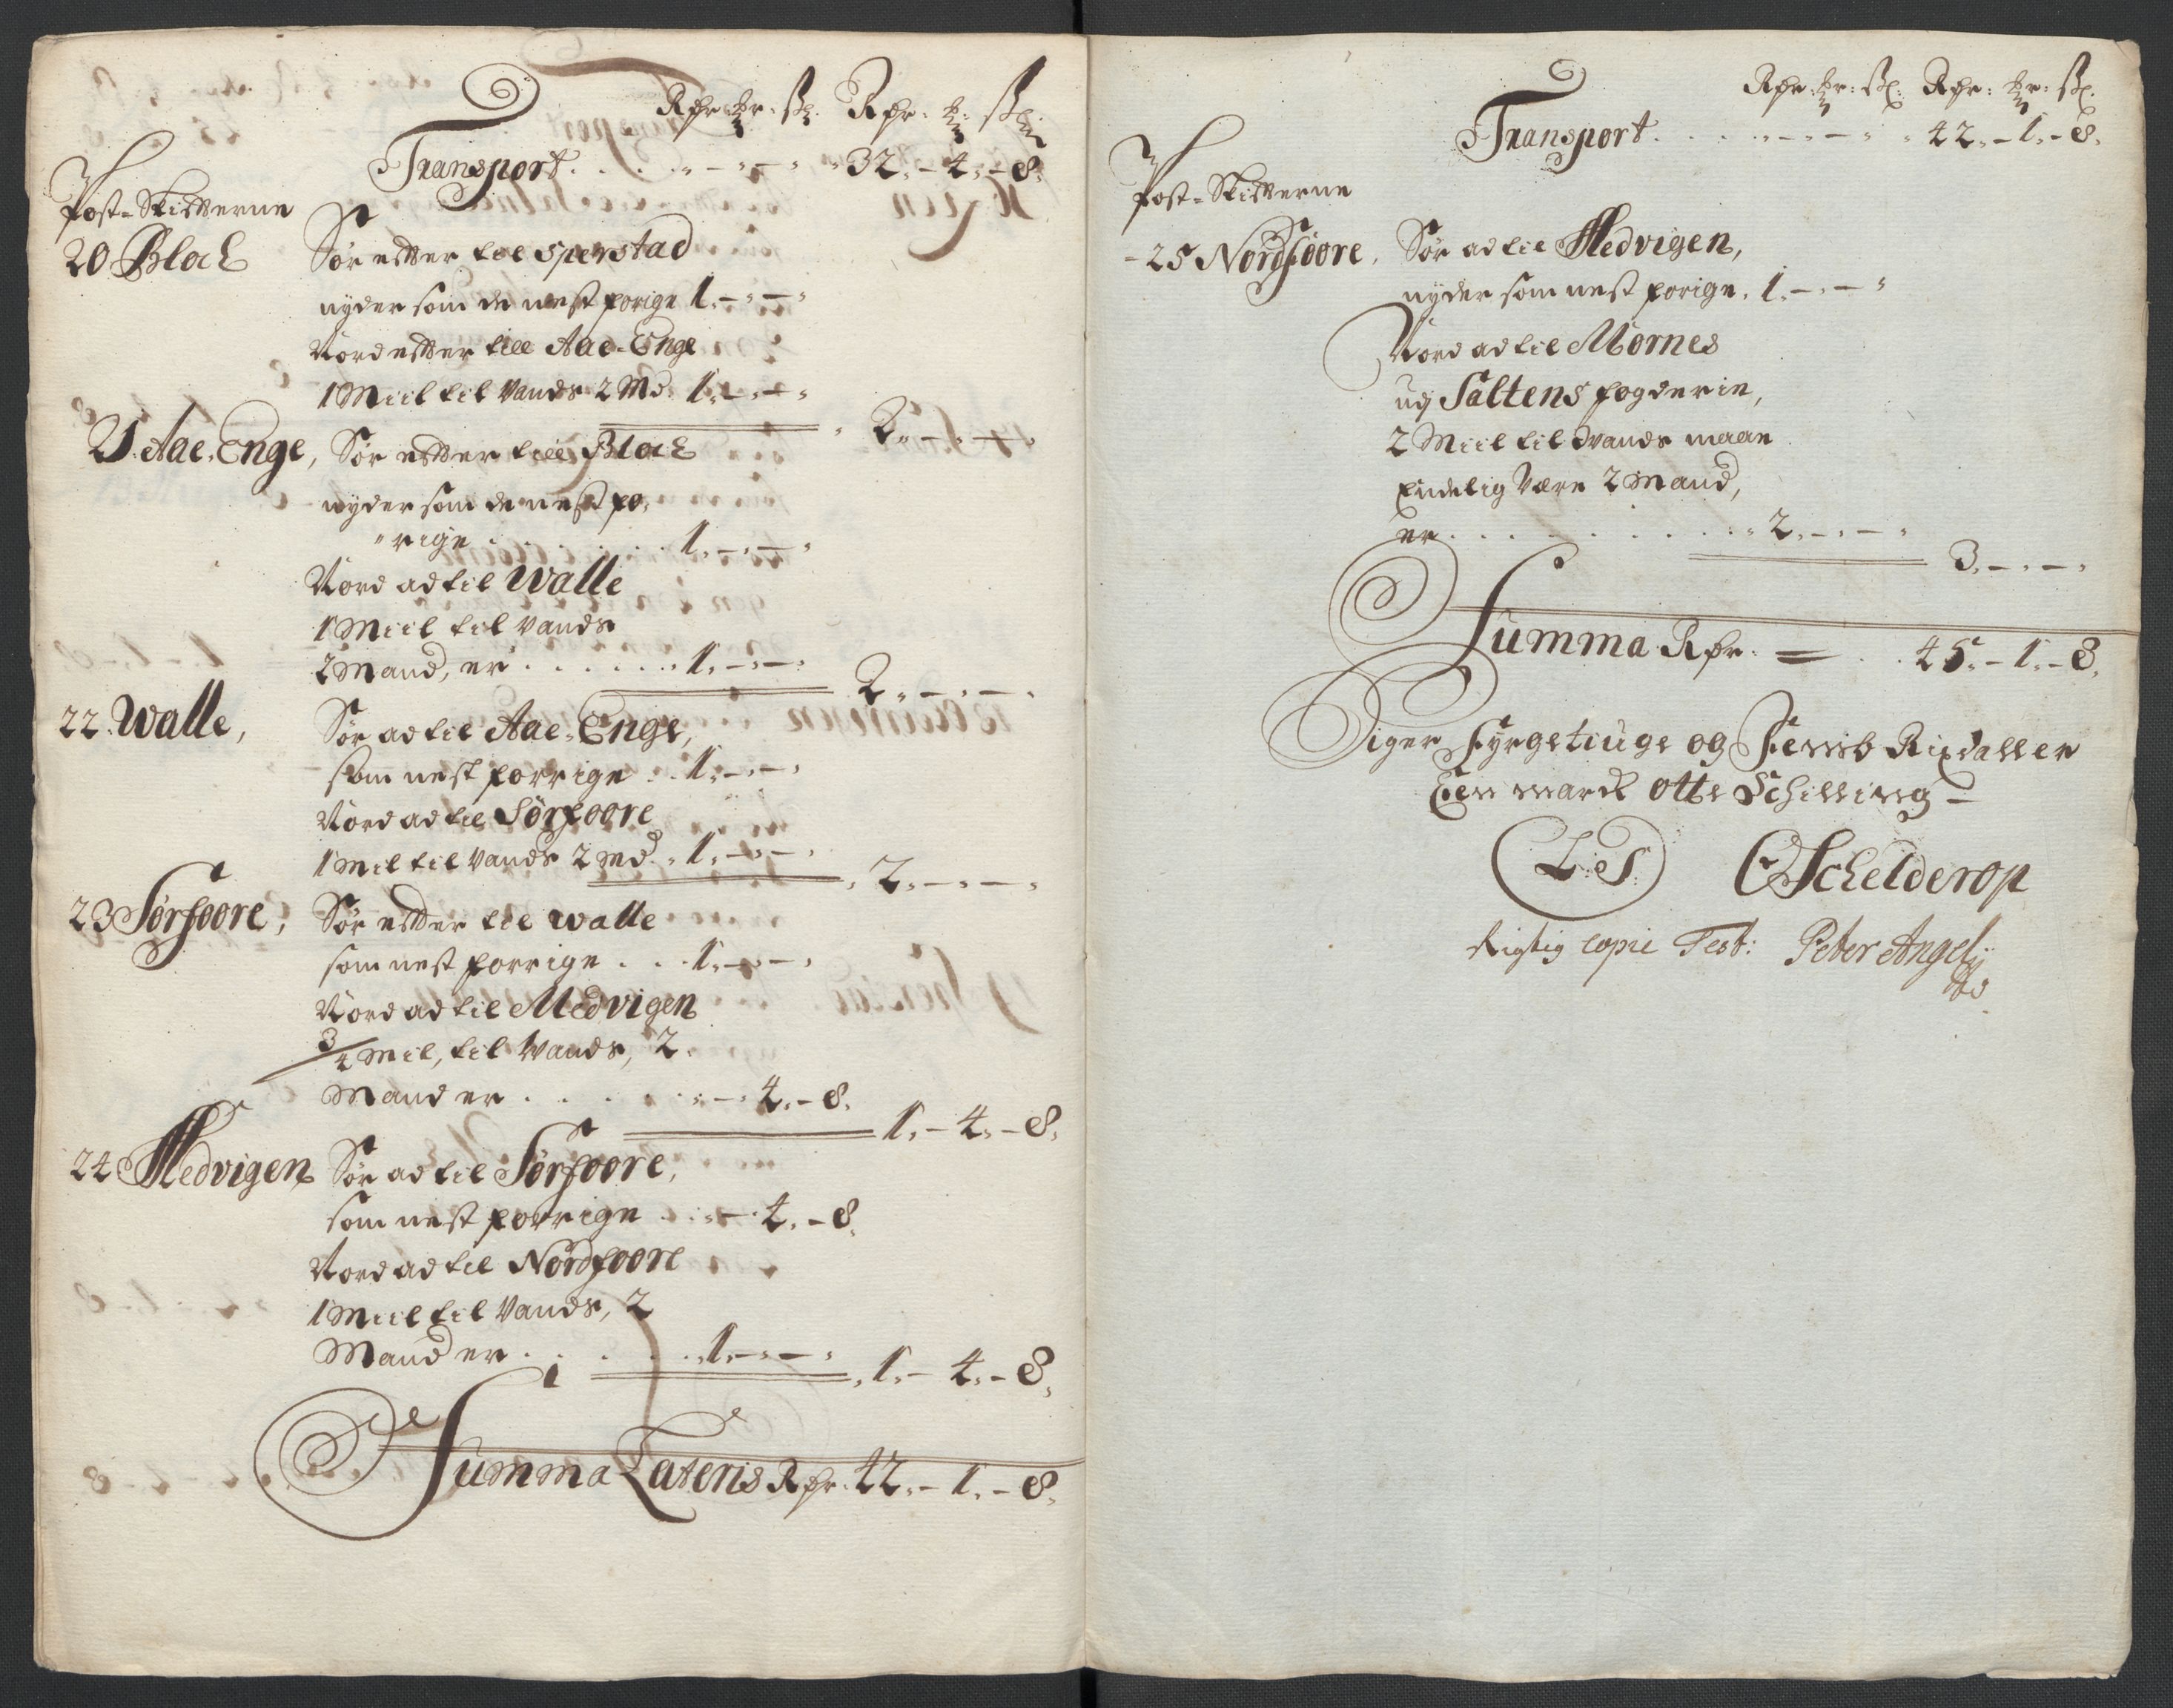 Rdr: ꝶr: ß: Rdr: ꝶ: ß:
Transport . . . . 32 - 4 - 8.
Post-Skifterne
20 Block Sør efter til Sperstad
nyder som de nest forige 1. - . - .
Nord efter till Aae-Enge
1 Miil til Vands 2 Md. 1. - . - .
2. - . - .
21. Aae-Enge, Sør efter till Block
nyder som de nest fo,
"rige . . . . . . 1. - . - .
Nord ad til Walle
1 Miil til Vands
2 Mand, er . . . . . . 1. - . - .
2. - . - .
22. Walle, Sør ad til Aae-Enge,
som nest forrige . . 1. - . - .
Nord ad til Sørfoore
1 Mil til Vands 2 Md. 1. - . - .
2. - . - .
23 Sørfoore, Sør efter til Walle
som nest forrige . . . 1. - . - .
Nord ad til Medvigen
3/4 Mil, til Vands, 2
Mand er . . . . . - 4. - 8.
1. - 4. - 8.
24 Medvigen Sør ad til Sørfoore,
som nest forrige . . - 4. - 8.
Nord ad til Nordfoore
1 Miil til Vands, 2
Mand er . . . . . 1. - . - .
1. - 4. - 8.
Summa Lateris Rdr. 42. - 1. - 8.
Rdr: ꝶr: ß: Rdr: ꝶr: ß:
Transport . . . . 42. - 1. - 8.
Post-Skifterne
25 Nordfoore, Sør ad til Medvigen,
nyder som nest forige. 1. - . - .
Nord ad til Mørnes
udj Saltens fogderie,
2 Miil til Vands maae
Endelig være 2 Mand,
er . . . . . . . . 2. - . - .
3. - . - .
Summa Rdr. = . . 45. - 1. - 8.
Siger Fyrgetiuge og Femb Rixdaller
Een March Otte Schilling -
L: S: C Schelderop
Rigtig copie Test: Peter Angel: